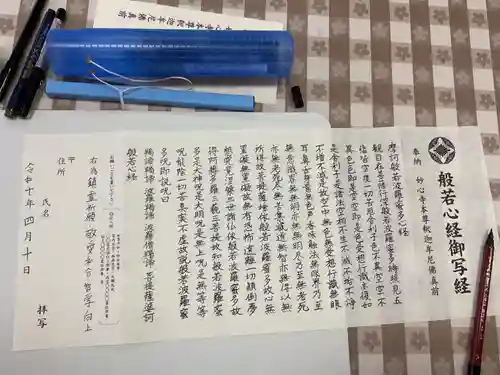 般若心経御写経
奉納 妙心寺本尊釈迦牟尼佛真前
摩訶般若波羅蜜多心経
観自在菩薩行深般若波羅蜜多時照見五
蘊皆空度一切苦厄舎利子色不異空空不
異色色即是空空即是色受想行識亦復如
是舎利子是諸法空相不生不滅不垢不浄
不増不減是故空中無色無受想行識無眼
耳鼻舌身意無色声香味触法無眼界乃至
無意識界無無明亦無無明尽乃至無老死
亦無老死尽無苦集滅道無智亦無得以無
所得故菩提薩埵依般若波羅蜜多故心無
罣礙無罣礙故無有恐怖遠離一切顛倒夢
想究竟涅槃三世諸仏依般若波羅蜜多故
得阿耨多羅三藐三菩提故知般若波羅蜜
多是大神呪是大明呪是無上呪是無等等
呪能除一切苦真実不虚故説般若波羅蜜
多呪即説呪曰
羯諦羯諦 波羅羯諦 波羅僧羯諦 菩提薩婆訶
般若心経
右為 鎮霊祈願 哲学向上
〒
住所
氏名 拝写
十年 四月十日